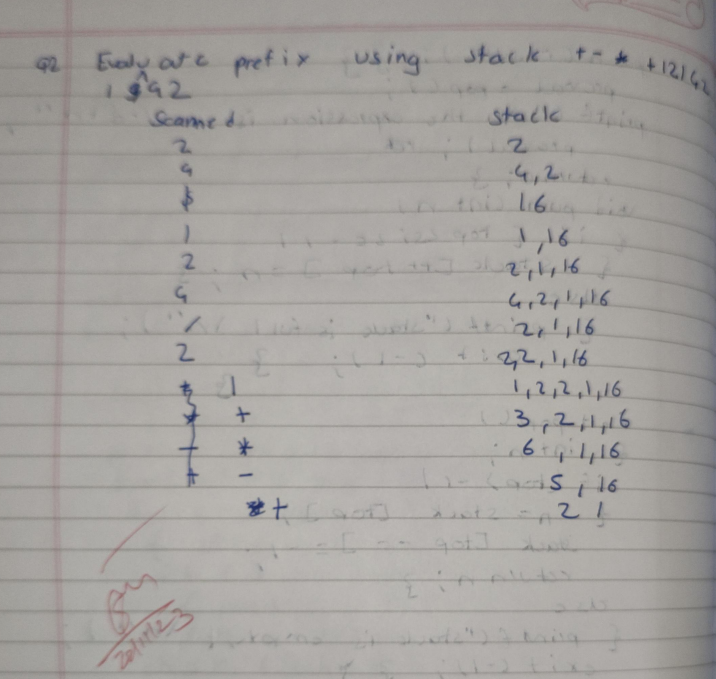 Q2 Evaluate prefix using stack + - * + 12 / 42
1 $ 42
Scanned stack
2 2
4 4,2
$ 16
1 1,16
2 2,1,16
4 4,2,1,16
/ 2,1,16
2 2,2,1,16
1 1,2,2,1,16
+ 3,2,1,16
* 6,1,16
- 5,16
+ 21